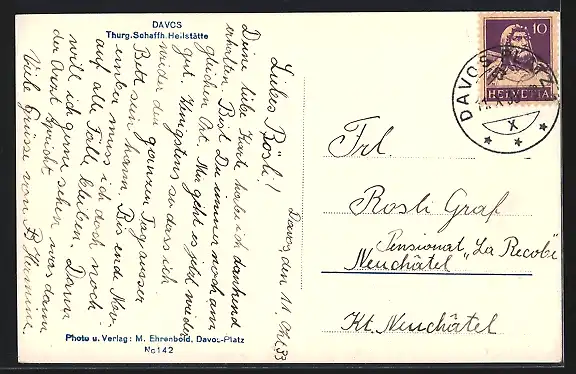 DAVOS
Thurg. Schaffh. Heilstätte
Davos, den 11. Okt 33
Liebes Rösli!
Deine liebe Karte habe ich dankend
erhalten. Bist Du immer noch am
gleichen Ort. Mir geht es jetzt wieder
gut. Wenigstens so dass ich
wieder den ganzen Tag ausser
Bett sein kann. Bis ende Nov-
ember muss ich doch noch
auf alle Fälle bleiben. Dann
will ich gerne sehen was dann
der Arzt spricht.
Viele Grüsse von B. Hermine.
Photo u. Verlag: M. Ehrenbold, Davos-Platz
No 142
10
HELVETIA
DAVOS
X
Frl.
Rosli Graf
Pensionat "La Recobe"
Neuchâtel
Kt. Neuchâtel